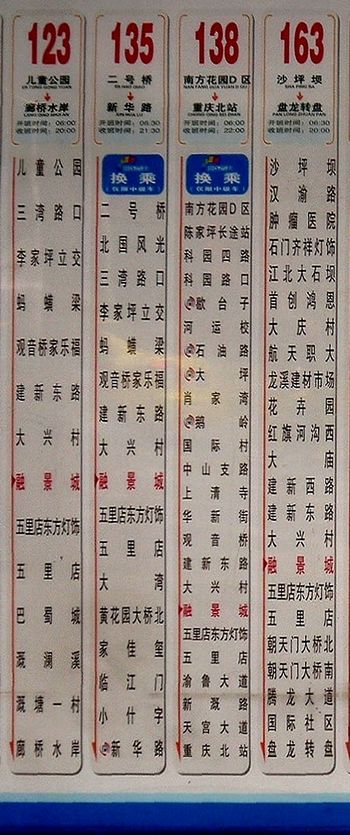 123
儿童公园
廊桥水岸
开班时间：06:00
收班时间：20:00
儿童公园
三湾路口
李家坪立交
蚂蟥梁
观音桥家乐福
建新东路
大兴村
融景城
五里店东方灯饰
五里店
巴蜀城
溉澜溪
溉塘一村
廊桥水岸
135
二号桥
新华路
开班时间：06:30
收班时间：21:30
换乘
（仅限中级车）
二号桥
北国风光
三湾路口
李家坪立交
蚂蟥梁
观音桥家乐福
建新东路
大兴村
融景城
五里店东方灯饰
五里店
大湾
黄花园大桥北
家佳玺
临江门
小什字
新华路
138
南方花园D区
NAN FANG HUA YUAN D QU
重庆北站
CHONG QING BEI ZHAN
开班时间：06:00
收班时间：22:00
换乘
（仅限中级车）
南方花园D区
陈家坪长途站
科园四路
科园路口
歇台子
河运校
石油路
大坪
肖家湾
鹅岭
国际村
中山支路
上清寺
华新街
观音桥
建新东路
大兴村
融景城
五里店东方灯饰
五里店
渝鲁大道
新溉路
天宫大道
重庆北站
163
沙坪坝
SHA PING BA
盘龙转盘
PAN LONG ZHUAN PAN
开班时间：06:30
收班时间：20:00
沙坪坝
汉渝路
肿瘤医院
石门齐祥灯饰
江北大石坝
首创鸿恩
大庆村
航天职大
龙溪建材市场
花卉园
红旗河沟西
大庙
建新西路
建新东路
大兴村
融景城
五里店东方灯饰
五里店
朝天门大桥北
朝天门大桥南
腾龙大道
国际社区
盘龙转盘